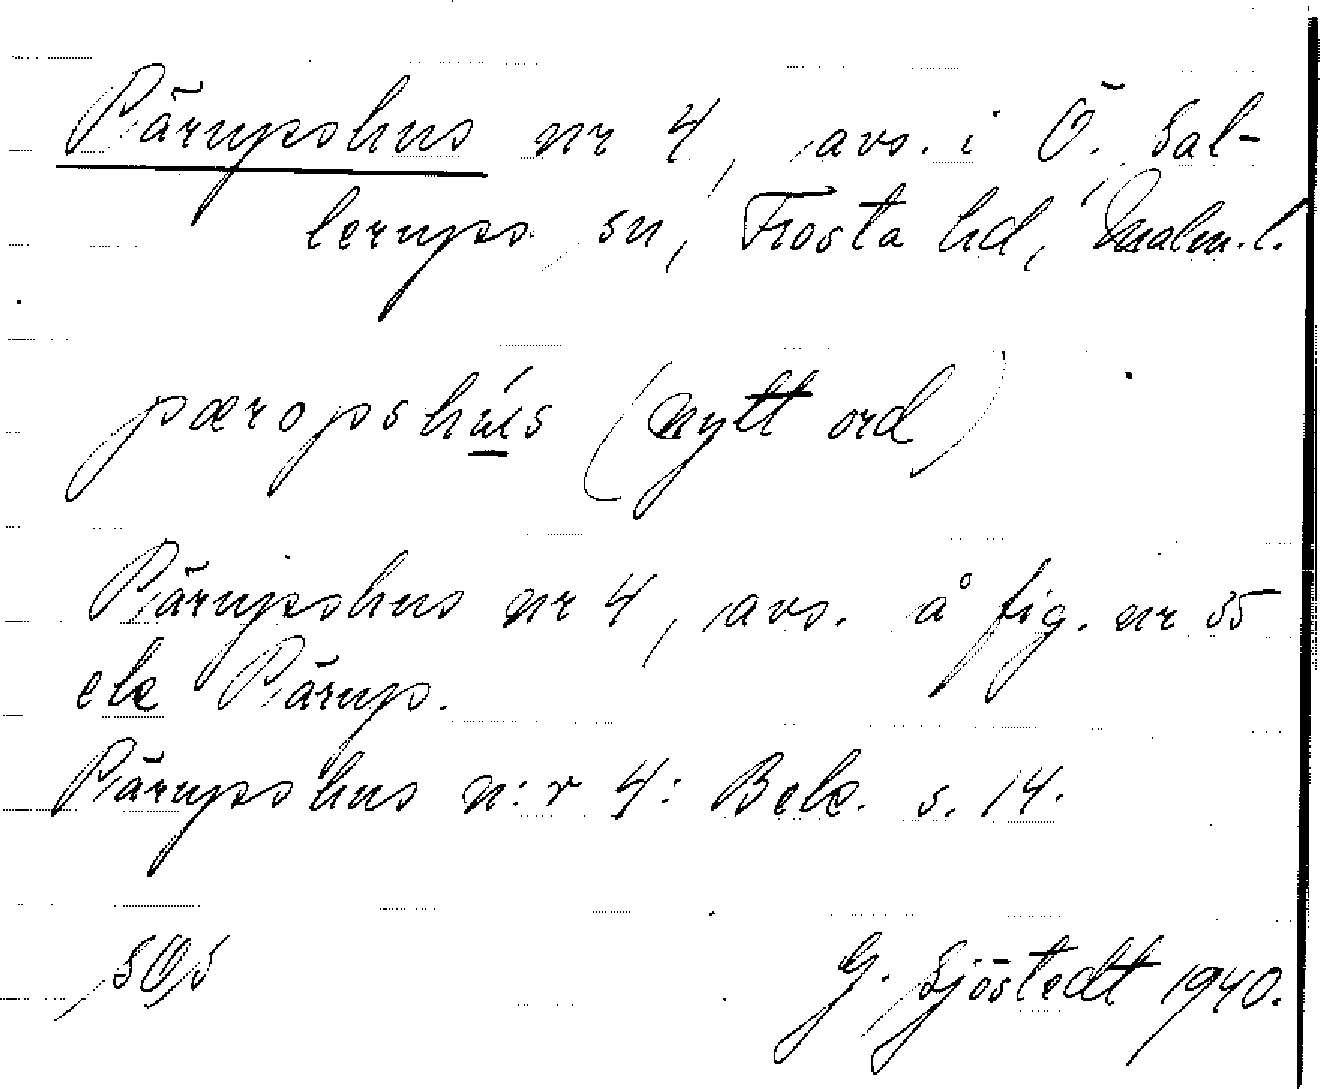 Pärupshus nr 4, avs. i Ö. Sal-
lerups sn, Frosta hd, Malm. l.
pæropshús (nytt ord)
Pärupshus nr 4, avs. å fig. nr 35
ek Pärup.
Pärupshus n:r 4: Bek. s. 14.
SOS
G. Sjöstedt 1940.